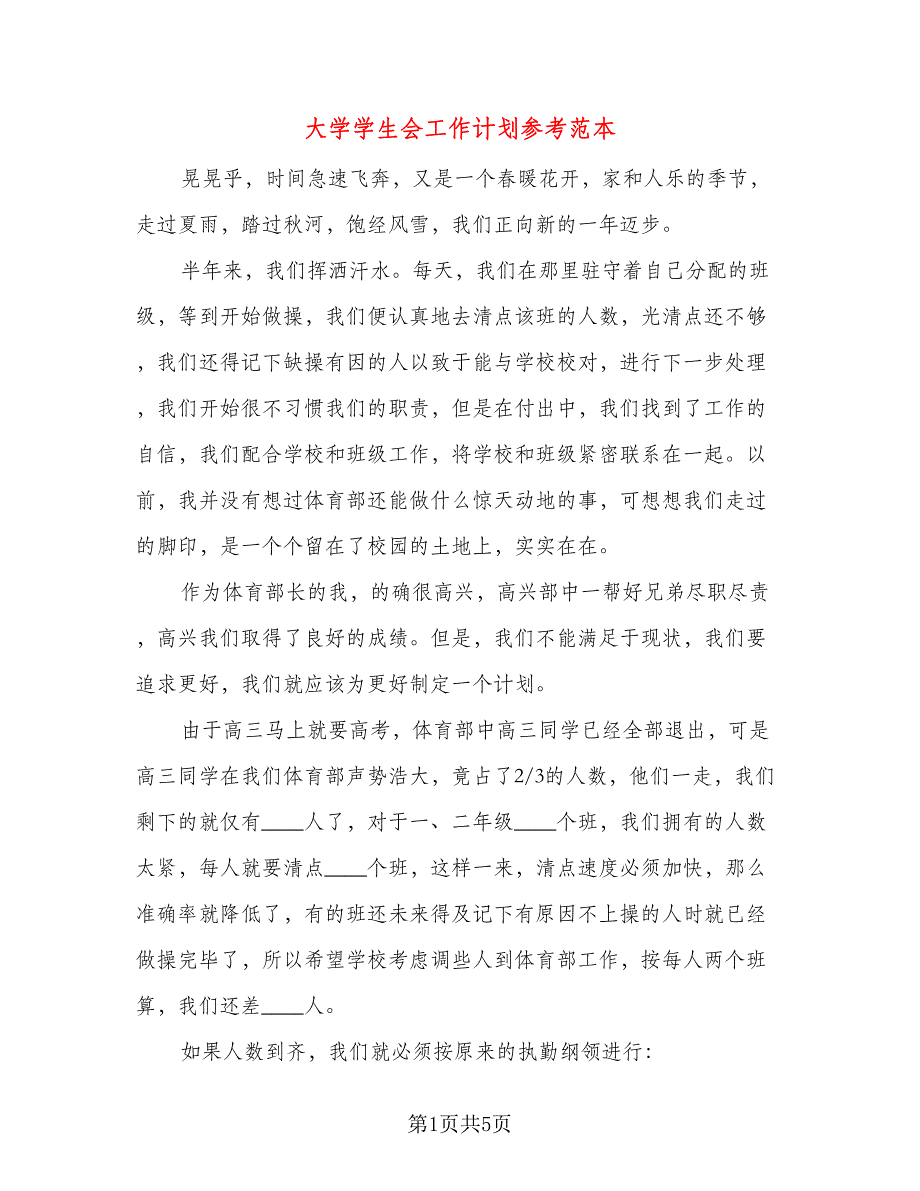 大学学生会工作计划参考范本
晃晃乎，时间急速飞奔，又是一个春暖花开，家和人乐的季节，
走过夏雨，踏过秋河，饱经风雪，我们正向新的一年迈步。
半年来，我们挥洒汗水。每天，我们在那里驻守着自己分配的班
级，等到开始做操，我们便认真地去清点该班的人数，光清点还不够
，我们还得记下缺操有因的人以致于能与学校校对，进行下一步处理
，我们开始很不习惯我们的职责，但是在付出中，我们找到了工作的
自信，我们配合学校和班级工作，将学校和班级紧密联系在一起。以
前，我并没有想过体育部还能做什么惊天动地的事，可想想我们走过
的脚印，是一个个留在了校园的土地上，实实在在。
作为体育部长的我，的确很高兴，高兴部中一帮好兄弟尽职尽责
，高兴我们取得了良好的成绩。但是，我们不能满足于现状，我们要
追求更好，我们就应该为更好制定一个计划。
由于高三马上就要高考，体育部中高三同学已经全部退出，可是
高三同学在我们体育部声势浩大，竟占了2/3的人数，他们一走，我们
剩下的就仅有____人了，对于一、二年级____个班，我们拥有的人数
太紧，每人就要清点____个班，这样一来，清点速度必须加快，那么
准确率就降低了，有的班还未来得及记下有原因不上操的人时就已经
做操完毕了，所以希望学校考虑调些人到体育部工作，按每人两个班
算，我们还差____人。
如果人数到齐，我们就必须按原来的执勤纲领进行：
第1页共5页